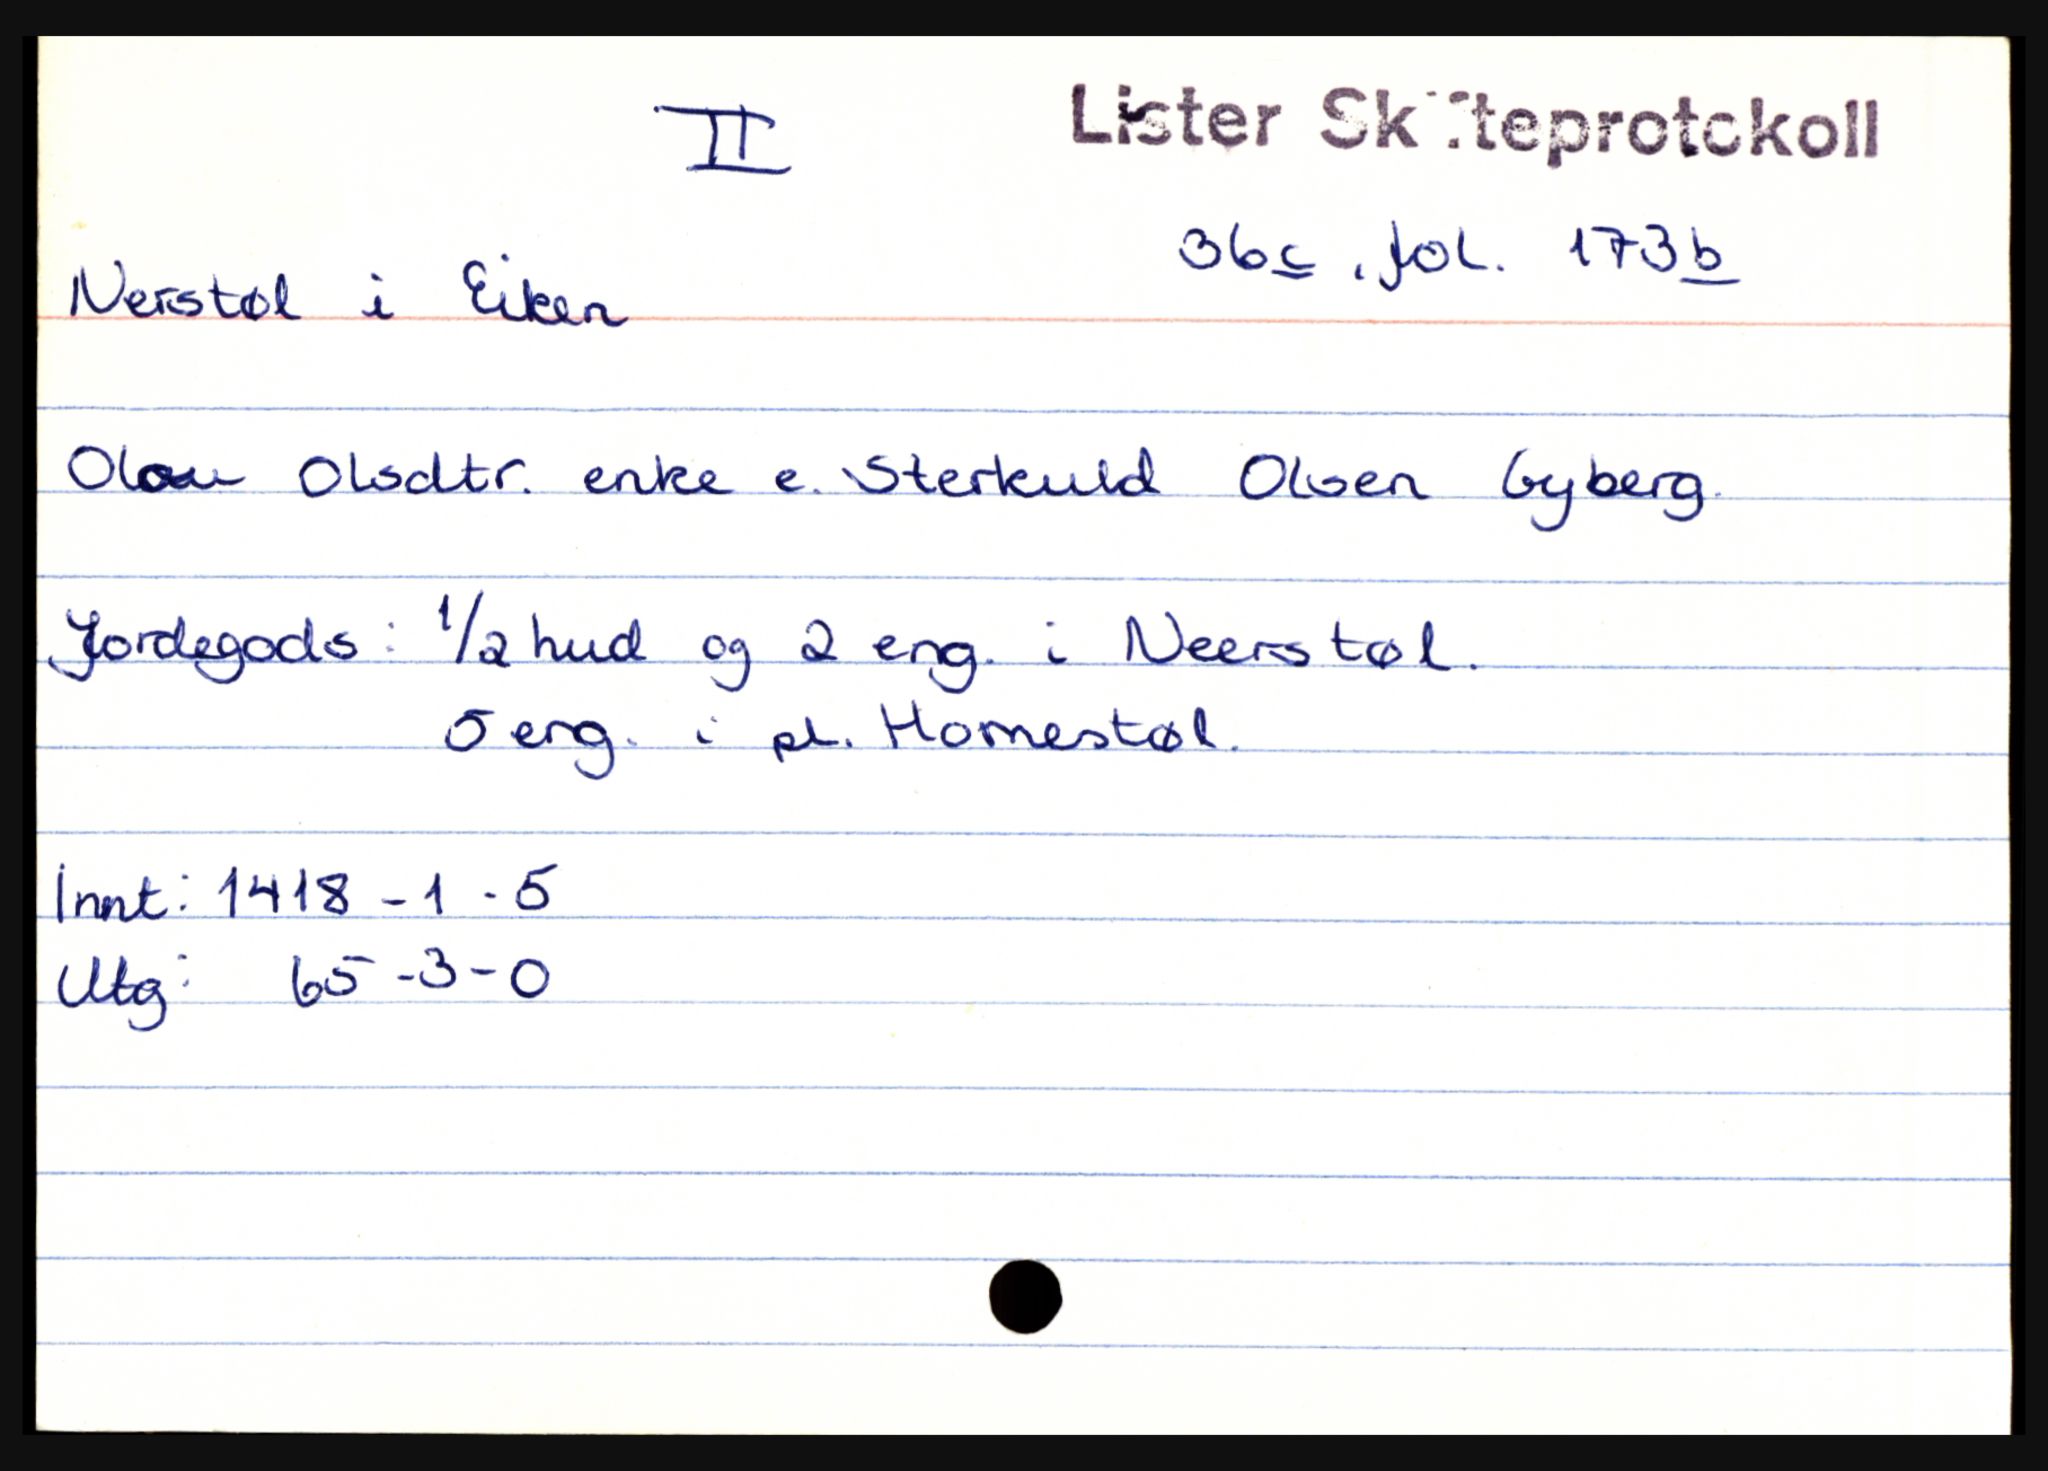 II
Lister Skifteprotokoll
36c, fol. 173b
Nerstøl i Eiken
Olsdtr. enke e. Sterkuld Olsen Gyberg.
Jordegods: 1/2 hud og 2 eng. i Neerstøl.
5 eng. i pl. Homestøl.
Innt: 1418 - 1 - 5
Utg: 65 - 3 - 0